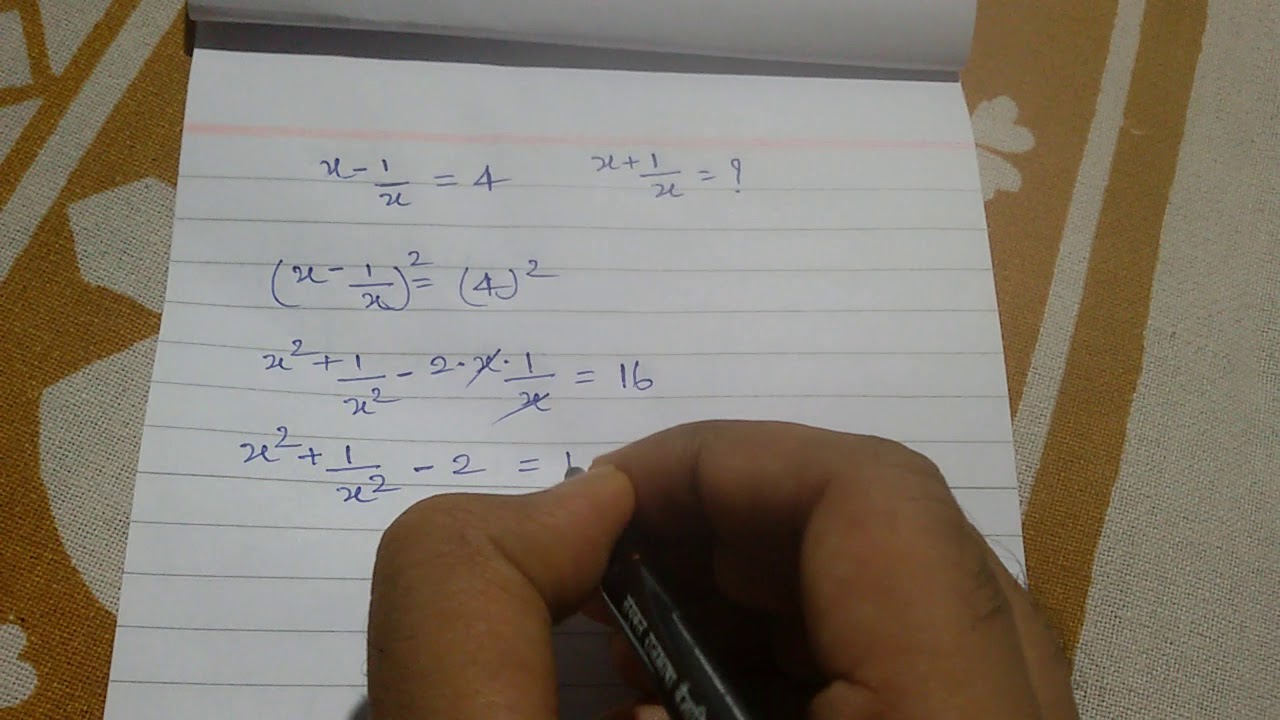 x - 1/x = 4 x + 1/x = ?
(x - 1/x)² = (4)²
x² + 1/x² - 2 · x · 1/x = 16
x² + 1/x² - 2 = 1